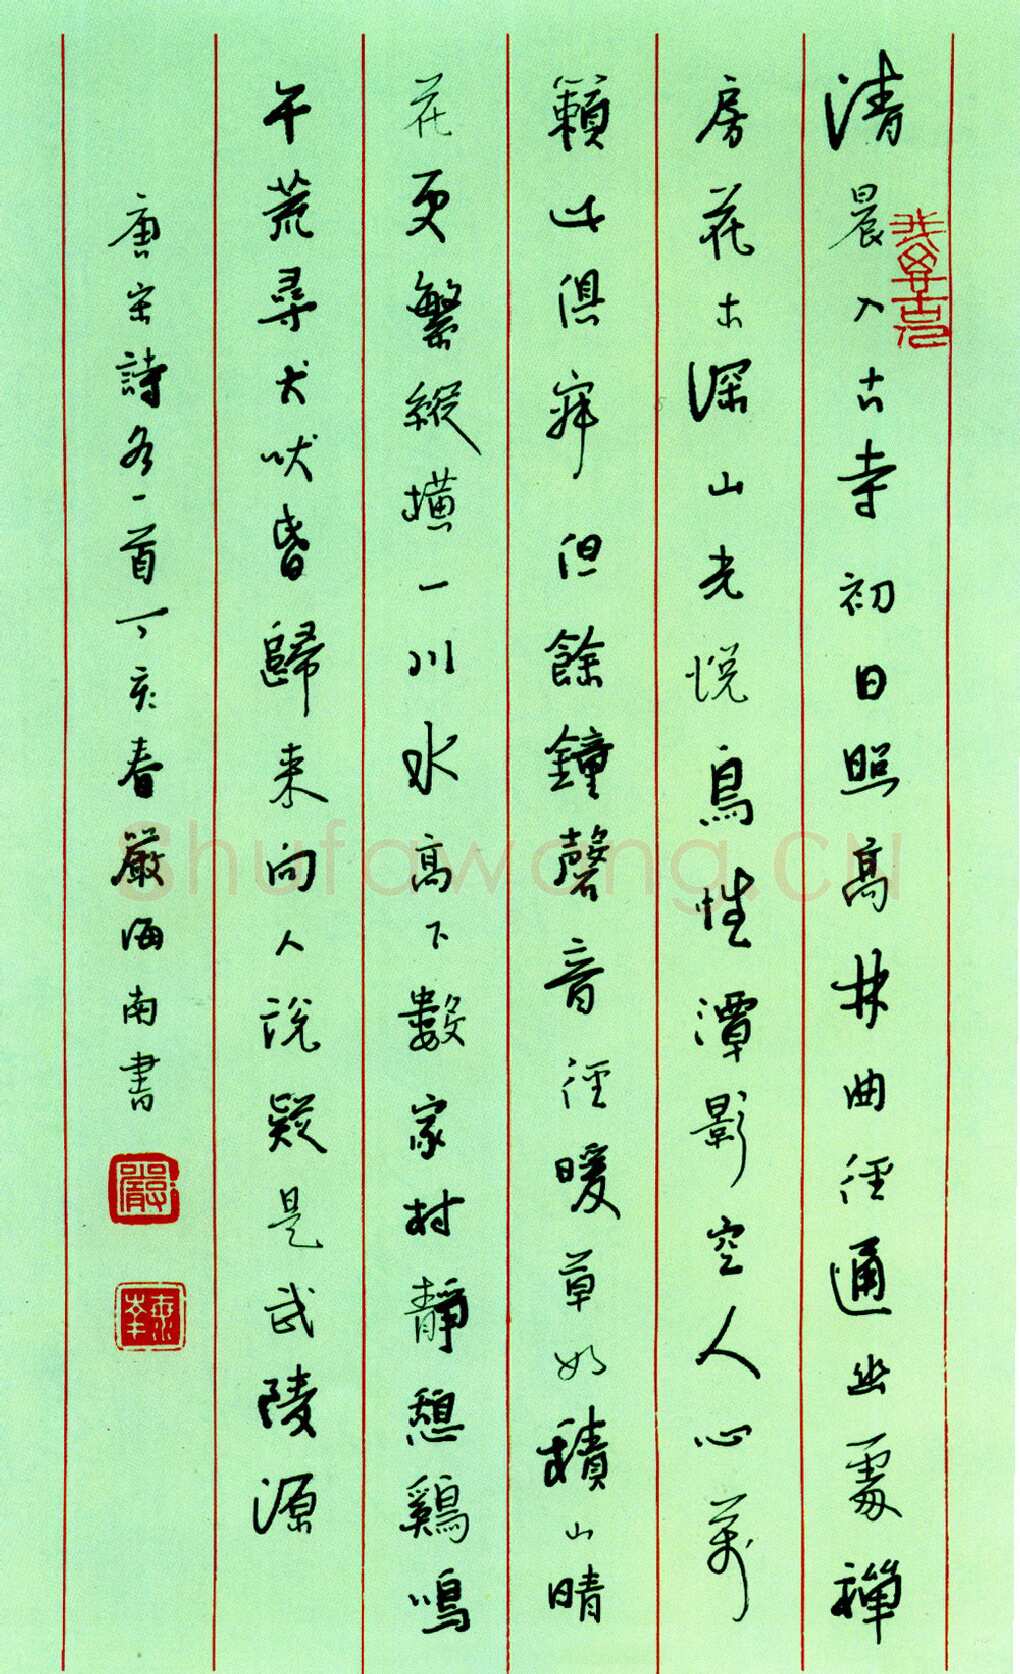 清晨入古寺初日照高林曲徑通幽處禪
房花木深山光悅鳥性潭影空人心萬
籟此俱寂但餘鐘磬音徑暖草如積山晴
花更繁縱橫一川水高下數家村靜憩鷄鳴
午荒尋犬吠昏歸来向人說疑是武陵源
唐宋詩各一首丁亥春嚴海南書
嚴
shufawang.cn